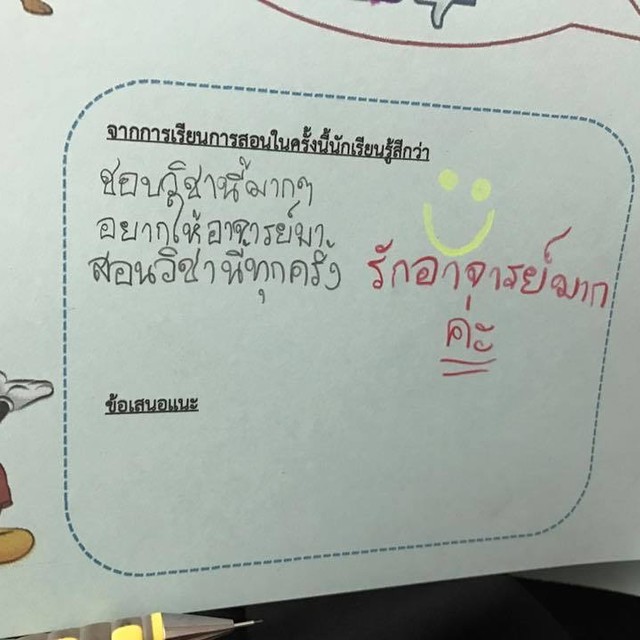 จากการเรียนการสอนในครั้งนี้นักเรียนรู้สึกว่า
ชอบวิชานี้มากๆ
อยากให้อาจารย์มา
สอนวิชานี้ทุกครั้ง
รักอาจุารย์มาก
ค่ะ
ข้อเสนอแนะ